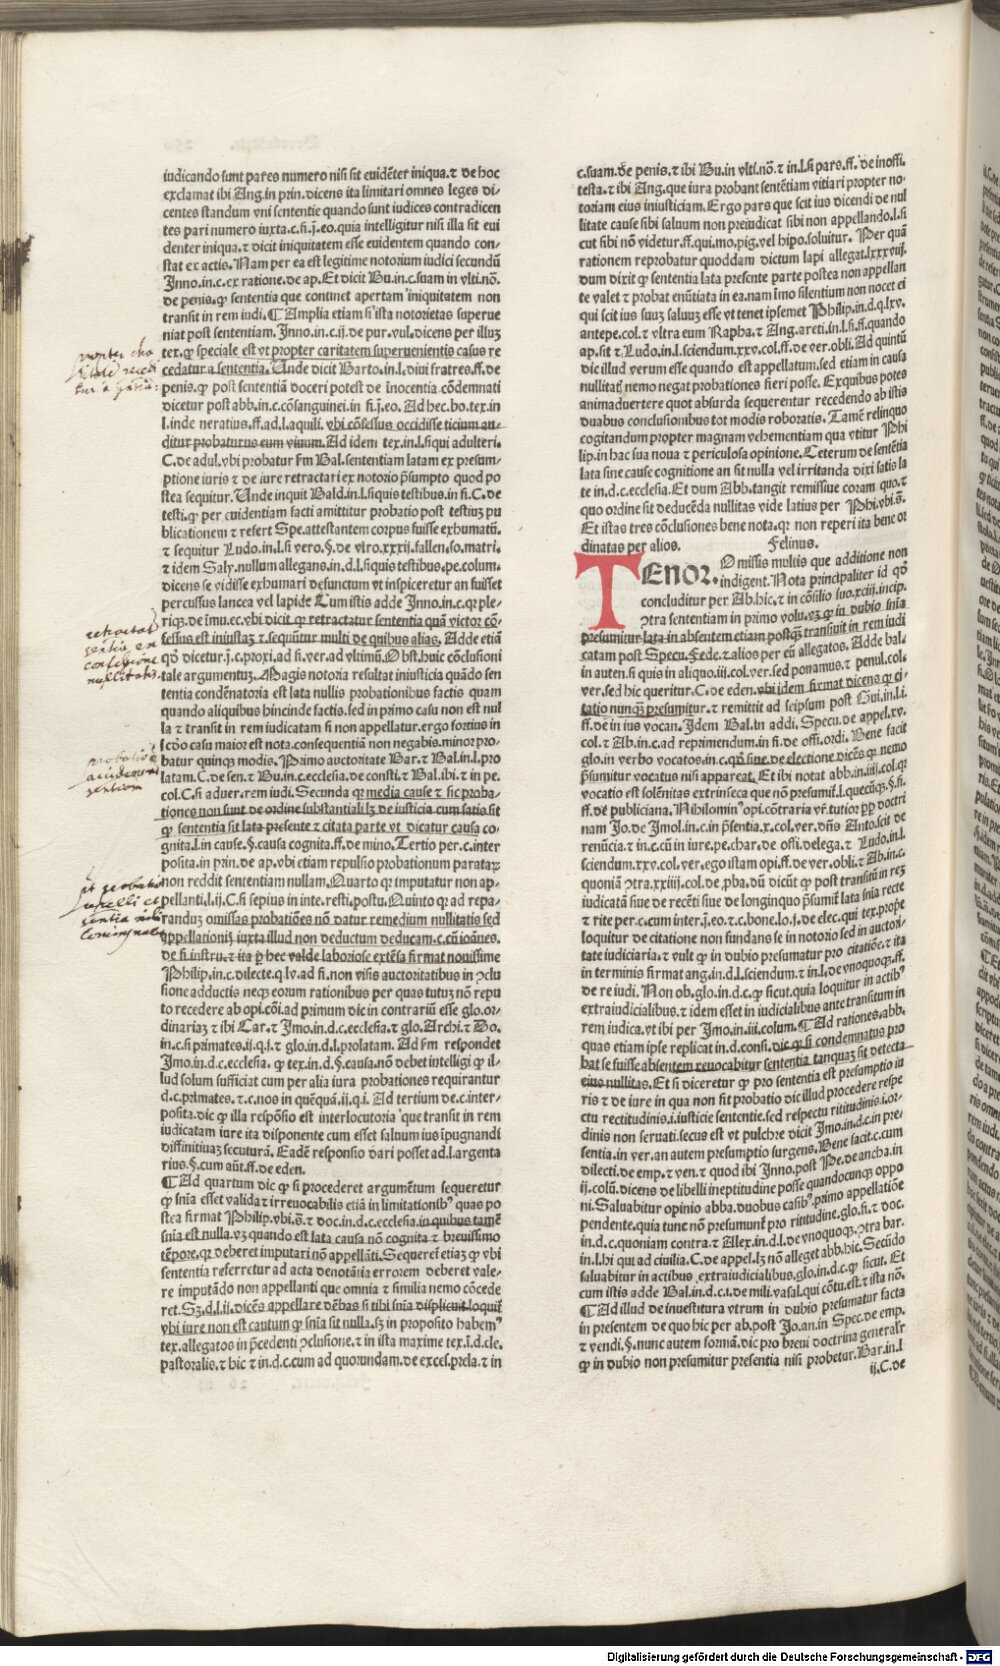 iudicando sunt pares numero nisi sit euidēter iniqua.⁊ de hoc
exclamat ibi Ang.in prin.dicens ita limitari omnes leges di-
centes standum vni sententie quando sunt iudices contradicen
tes pari numero iuxta.c.fi.j.eo.quia intelligitur nisi illa sit eui
denter iniqua.⁊ dicit iniquitatem esse euidentem quando con-
stat ex actis.Nam per ea est legitime notorium iudici secundū
Inno.in.c.ex ratione.de ap.Et dicit Bu.in.c.suam in vlti.nō.
de penis.ꝙ sententia que continet apertam iniquitatem non
transit in rem iudi.¶Amplia etiam si ista notorietas superue
niat post sententiam.Inno.in.c.ij.de pur.vul.dicens per illuz
tex.ꝙ speciale est vt propter caritatem superuenientis casus re
cedatur a sententia.Unde dicit Barto.in.l.diui fratres.ff.de
penis.ꝙ post sententiā doceri potest de inocentia cōdemnati
dicetur post abb.in.c.cōsanguinei.in fi.j.eo.Ad hec.bo.tex.in
l.inde neratius.ff.ad.l.aquili.vbi cōfessus occidisse ticium au-
ditur probaturus eum viuum.Ad idem tex.in.l.siqui adulteri.
C.de adul.vbi probatur ẜm Bal.sententiam latam ex presum-
ptione iuris ⁊ de iure retractari ex notorio p̄sumpto quod po
stea sequitur.Unde inquit Bald.in.l.siquis testibus.in fi.C.de
testi.ꝙ per euidentiam facti amittitur probatio post testiuz pu
blicationem ⁊ refert Spe.attestantem corpus fuisse exhumatū.
⁊ sequitur Ludo.in.l.si vero.§.de viro.xxxij.fallen.so.matri.
⁊ idem Saly.nullum allegans.in.d.l.siquis testibus.pe.colum.
dicens se vidisse exhumari defunctum vt inspiceretur an fuisset
percussus lancea vel lapide Cum istis adde Inno.in.c.qꝛ ple-
riqꝫ.de īmu.ec.vbi dicit ꝙ retractatur sententia quā victor cō-
fessus est iniustaꝫ ⁊ sequūtur multi de quibus alias.Adde etiā
qō dicetur.j.c.proxi.ad fi.ver.ad vltimū.Obst.huic cōclusioni
tale argumentuꝫ.Magis notoria resultat iniusticia quādo sen
tentia condēnatoria est lata nullis probationibus factis quam
quando aliquibus hincinde factis.sed in primo casu non est nul
la ⁊ transit in rem iudicatam si non appellatur.ergo fortius in
scōo casu maior est nota.consequentiā non negabis.minor pro-
batur quinqꝫ modis.Primo auctoritate Bar.⁊ Bal.in.l.pro
latam.C.de sen.⁊ Bu.in.c.ecclesia.de consti.⁊ Bal.ibi.⁊ in pe.
col.C.si aduer.rem iudi.Secunda qꝛ media cause ⁊ sic proba-
tiones non sunt de ordine substantiali lꝫ de iusticia.cum satis sit
ꝙ sententia sit lata presente ⁊ citata parte vt dicatur causa co-
gnita.l.in cause.§.causa cognita.ff.de mino.Tertio per.c.inter
posita.in prin.de ap.vbi etiam repulsio probationum parataꝝ
non reddit sententiam nullam.Quarto qꝛ imputatur non ap-
pellanti.l.ij.C.si sepius in inte.resti.postu.Quinto qꝛ ad repa-
randuꝫ omissas probatiōes nō datur remedium nullitatis sed
appellationis iuxta illud non deductum deducam.c.cū ioānes.
de fi.instru.⁊ ita p̱ hec valde laboriose extēsa firmat nouissime
Philip.in.c.dilecte.q.lv.ad fi.non visis auctoritatibus in ꝯclu
sione adductis neqꝫ eorum rationibus per quas tutuꝫ nō repu
to recedere ab opi.cōi.ad primum dic in contrariū esse glo.or-
dinariaꝫ ⁊ ibi Car.⁊ Imo.in.d.c.ecclesia.⁊ glo.Archi.⁊ Do.
in.c.si primates.ij.q.i.⁊ glo.in.d.l.prolatam. Ad ẜm respondet
Imo.in.d.c.ecclesia. ꝙ tex.in.d.§.causa.nō debet intelligi ꝙ il-
lud solum sufficiat cum per alia iura probationes requirantur
d.c.primates.⁊.c.nos in quēquā.ij.q.i. Ad tertium de.c.inter-
posita.dic ꝙ illa respōsio est interlocutoria que transit in rem
iudicatam iure ita disponente cum esset saluum ius īpugnandi
diffinitiuaꝫ secuturā. Eadē responsio dari posset ad.l.argenta
rius.§.cum aūt.ff.de eden.
¶Ad quartum dic ꝙ si procederet argumētum sequeretur
ꝙ sn̄ia esset valida ⁊ irreuocabilis etiā in limitationibꝰ quas po
stea firmat Philip.vbi.s̄.⁊ doc.in.d.c.ecclesia.in quibus tamē
sn̄ia est nulla.vꝫ quando est lata causa nō cognita ⁊ breuissimo
tēpore.qꝛ deberet imputari nō appellāti.Sequeret etiaꝫ ꝙ vbi
sententia referretur ad acta denotātia errorem deberet vale-
re imputādo non appellanti que omnia ⁊ similia nemo cōcede
ret. Sꝫ.d.l.ij.dicēs appellare dēbas si tibi sn̄ia displicuit.loquit̄
vbi iure non est cautum ꝙ sn̄ia sit nulla.sꝫ in proposito habemꝰ
tex.allegatos in p̄cedenti ꝯclusione.⁊ in ista maxime tex.i.d.cle.
pastoralis.⁊ hic ⁊ in.d.c.cum ad quorundam.de excel.prela.⁊ in
c.suam.de penis.⁊ ibi Bu.in vlti.nō.⁊ in.l.si pars.ff.de inoffi.
testa.⁊ ibi Ang.que iura probant sentētiam vitiari propter no-
toriam eius iniusticiam.Ergo pars que scit ius dicendi de nul
litate cause sibi saluum non preiudicat sibi non appellando.l.si
cut sibi nō videtur.ff.qui.mo.pig.vel hipo.soluitur. Per quā
rationem reprobatur quoddam dictum lapi allegat.lxxxviij.
dum dixit ꝙ sententia lata presente parte postea non appellan
te valet ⁊ probat enūtiata in ea.nam īmo silentium non nocet ei
qui scit ius suuꝫ saluuꝫ esse vt tenet ipsemet Philip.in.d.q.lxv.
antepe.col.⁊ vltra eum Rapha.⁊ Ang.areti.in.l.si.ff.quando
ap.sit ⁊ Ludo.in.l.sciendum.xxv.col.ff.de ver.obli.Ad quintū
dic illud verum esse quando est appellatum.sed etiam in causa
nullitatꝭ nemo negat probationes fieri posse.Exquibus potes
animaduertere quot absurda sequerentur recedendo ab istis
duabus conclusionibus tot modis roboratis. Tamē relinquo
cogitandum propter magnam vehementiam qua vtitur Phi
lip.in hac sua noua ⁊ periculosa opinione.Ceterum de sentētia
lata sine cause cognitione an sit nulla vel irritanda dixi satis la
te in.d.c.ecclesia.Et dum Abb.tangit remissiue coram quo.⁊
quo ordine sit deducēda nullitas vide latius per Phi.vbi.s̄.
Et istas tres cōclusiones bene nota.qꝛ non reperi ita bene or
dinatas per alios. Felinus.
TEnor. Omissis multis que additione non
indigent.Nota principaliter id qō
concluditur per Ab.hic.⁊ in cōsilio suo.xciij.incip.
ꝯtra sententiam in primo volu.vꝫ ꝙ in dubio sn̄ia
presumitur lata in absentem etiam postqꝫ transiuit in rem iudi
catam post Specu.Fede.⁊ alios per eū allegatos. Adde bal.
in auten.si quis in aliquo.iij.col.ver.sed ponamus.⁊ penul.col.
ver.sed hic queritur.C.de eden.vbi idem firmat dicens ꝙ ci-
tatio nunqꝫ presumitur.⁊ remittit ad seipsum post Gui.in.l.i.
ff.de in ius vocan.Idem Bal.in addi.Specu.de appel.xv.
col.⁊ Ab.in.c.ad reprimendum.in fi.de offi.ordi. Bene facit
glo.in verbo vocatos.in.c.qō sine.de electione.dicēs ꝙ nemo
p̄sumitur vocatus nisi appareat. Et ibi notat abb.in.iiij.col.qꝛ
vocatio est solēnitas extrinseca que nō presumit̄.l.quecūqꝫ.§.fi.
ff.de publiciana.Nihilominꝰ opi.cōtraria vr̄.tutior p̱p doctri
nam Jo.de Imol.in.c.in p̄sentia.x.col.ver.dn̄s Anto.scit de
renūcia.⁊ in.c.cū in iure.pe.char.de offi.delega.⁊ Ludo.in.l.
sciendum.xxv.col.ver.ego istam opi.ff.de ver.obli.⁊ Ab.in.c.
quoniā ꝯtra.xxiiij.col.de.ꝓba.dū dicūt ꝙ post transitū in reꝫ
iudicatā siue de recēti siue de longinquo p̄sumit̄ lata sn̄ia recte
⁊ rite per.c.cum inter.j.eo.⁊.c.bone.lo.j.de elec.qui tex.prope
loquitur de citatione non fundans se in notorio sed in auctori-
tate iudiciaria.⁊ vult ꝙ in dubio presumatur pro citatiōe.⁊ ita
in terminis firmat ang.in.d.l.sciendum.⁊ in.l.de vnoquoqꝫ.ff.
de re iudi. Non ob.glo.in.d.c.ꝙ sicut.quia loquitur in actibꝰ
extraiudicialibus.⁊ idem esset in iudicialibus ante transitum in
rem iudica.vt ibi per Imo.in.iii.colum.¶Ad rationes.abb.
quas etiam ipse replicat in.d.consi.dic ꝙ si condemnatus pro
bat se fuisse absentem reuocabitur sententia tanquaꝫ sit detecta
eius nullitas.Et si diceretur ꝙ pro sententia est presumptio iu
ris ⁊ de iure in qua non fit probatio dic illud procedere respe
ctu rectitudinis.i.iusticie sententie.sed respectu rititudinis.i.or-
dinis non seruati.secus est vt pulchre dicit Imo.in.d.c.in pre-
sentia.in ver.an autem presumptio surgens.Bene facit.c.cum
dilecti.de emp.⁊ ven.⁊ quod ibi Inno.post Pe.de ancha.in
ij.colū.dicens de libelli ineptitudine posse quandocunqꝫ oppo
ni.Saluabitur opinio abba.duobus casibꝰ.primo appellatiōe
pendente.quia tunc nō presumunt̄ pro rititudine.glo.fi.⁊ doc.
in.d.c.quoniam contra.⁊ Alex.in.d.l.de vnoquoqꝫ.ꝯtra bar.
in.l.hi qui ad ciuilia.C.de appel.lꝫ nō alleget abb.hic.Secūdo
saluabitur in actibus extraiudicialibus.glo.in.d.c.ꝙ sicut. Et
cum istis adde Bal.in.d.c.i.de mili.vasal.qui cōtu.est.⁊ ista nō.
¶Ad illud de inuestitura vtrum in dubio presumatur facta
in presentem de quo hic per ab.post Jo.an.in Spec.de emp.
⁊ vendi.§.nunc autem formā.dic pro breui doctrina generalr̄
ꝙ in dubio non presumitur presentia nisi probetur.Bar.in.l
ij.C.de
Digitalisierung gefördert durch die Deutsche Forschungsgemeinschaft - DFG